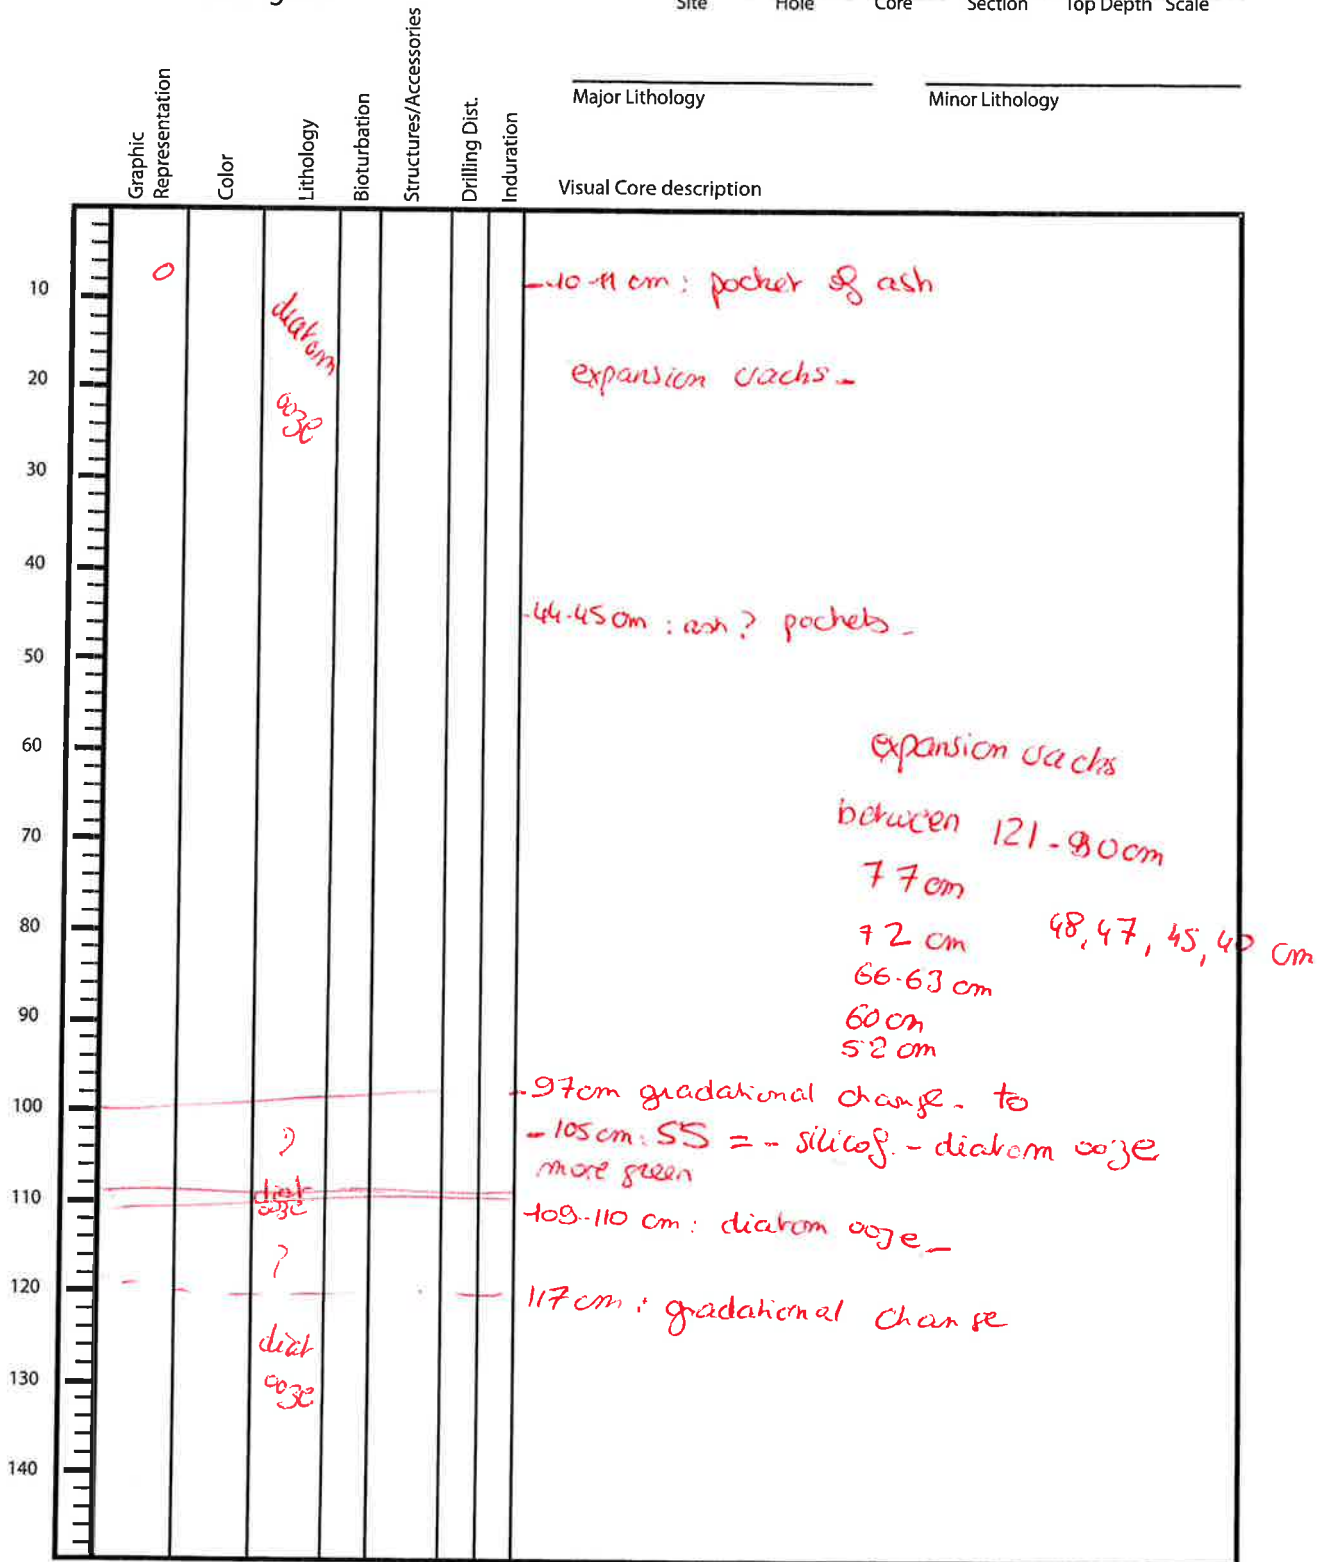 Site Hole Core Section Top Depth Scale
Major Lithology Minor Lithology
Graphic Representation
Color
Lithology
Bioturbation
Structures/Accessories
Drilling Dist.
Induration
Visual Core description
10
20
30
40
50
60
70
80
90
100
110
120
130
140
diatom
ooze
?
diat
ooze
?
diat
ooze
-10-11 cm: pocket of ash
expansion cracks-
-44-45cm: ash? pockets-
expansion cracks
between 121-80cm
77cm
72 cm 48, 47, 45, 40 cm
66-63 cm
60 cm
52 cm
-97cm gradational change- to
-105cm: SS = - silicof. - diatom ooze
more green
-109-110 cm: diatom ooze-
117 cm: gradational change